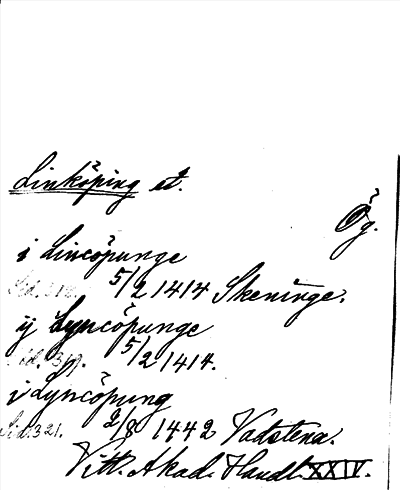 Linköping st.
Ög.
i Lincöpunge
Sid. 318. 5/2 1414 Skeninge.
ij Lyncöpunge
Sid. 319. 5/2 1414.
i Lyncöpung
Sid. 321. 2/8 1442 Vadstena.
Vitt. Akad. Handl. XXIV.